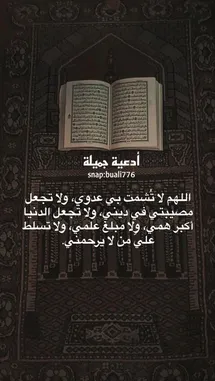 أدعية جميلة
snap:buali776
اللهم لا تُشمت بي عدوي، ولا تجعل
مصيبتي في ديني، ولا تجعل الدنيا
أكبر همي، ولا مبلغ علمي، ولا تسلط
علي من لا يرحمني.